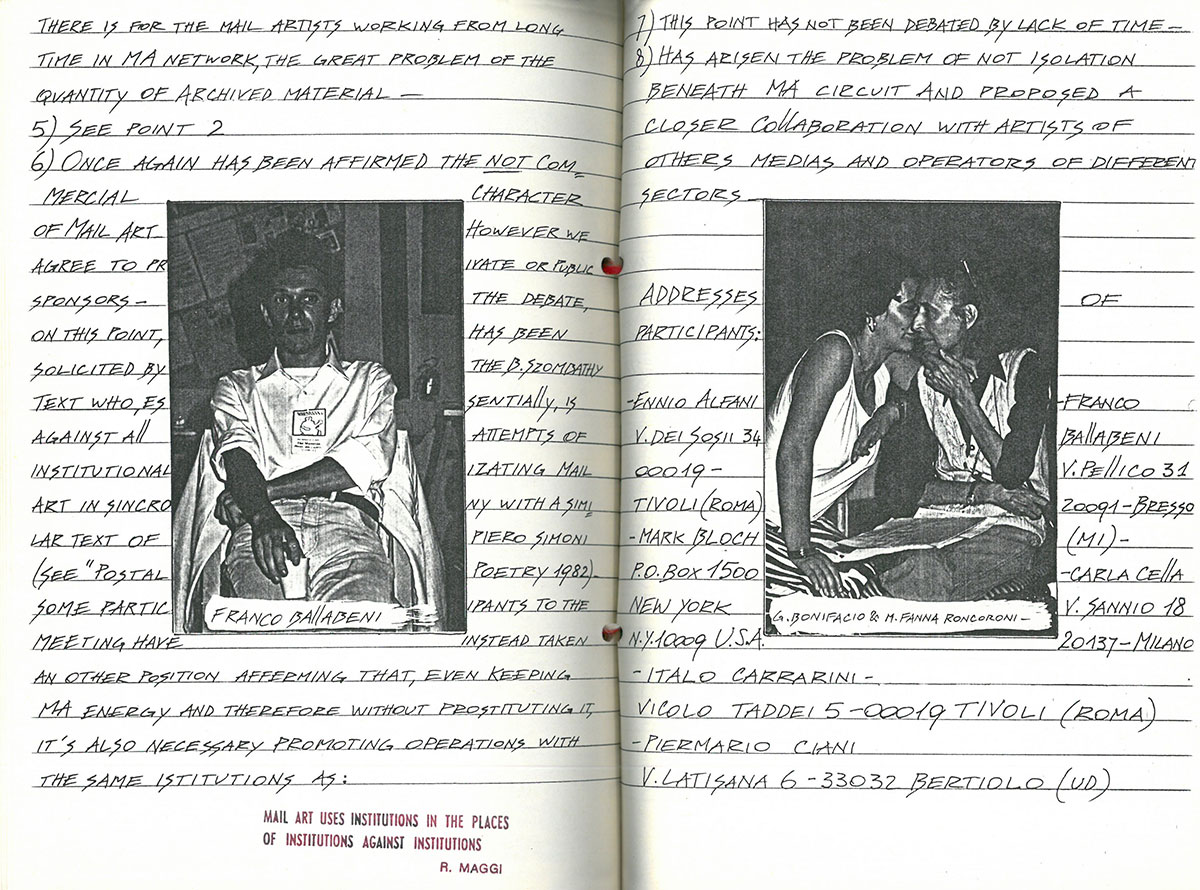 THERE IS FOR THE MAIL ARTISTS WORKING FROM LONG
TIME IN MA NETWORK, THE GREAT PROBLEM OF THE
QUANTITY OF ARCHIVED MATERIAL —
5) SEE POINT 2
6) ONCE AGAIN HAS BEEN AFFIRMED THE NOT COM=
MERCIAL CHARACTER
OF MAIL ART HOWEVER WE
AGREE TO PRIVATE OR PUBLIC
SPONSORS — THE DEBATE,
ON THIS POINT, HAS BEEN
SOLICITED BY THE B. SZOMBATHY
TEXT WHO, ESSENTIALLY, IS
AGAINST All ATTEMPTS OF
INSTITUTIONALIZATING MAIL
ART IN SINCRONY WITH A SIMI=
LAR TEXT OF PIERO SIMONI
(SEE "POSTAL POETRY 1982) -
SOME PARTICIPANTS TO THE
MEETING HAVE INSTEAD TAKEN
AN OTHER POSITION AFFERMING THAT, EVEN KEEPING
MA ENERGY AND THEREFORE WITHOUT PROSTITUTING IT,
IT'S ALSO NECESSARY PROMOTING OPERATIONS WITH
THE SAME ISTITUTIONS AS:
FRANCO BALLABENI
MAIL ART USES INSTITUTIONS IN THE PLACES
OF INSTITUTIONS AGAINST INSTITUTIONS
R. MAGGI
7) THIS POINT HAS NOT BEEN DEBATED BY LACK OF TIME —
8) HAS ARISEN THE PROBLEM OF NOT ISOLATION
BENEATH MA CIRCUIT AND PROPOSED A
CLOSER COLLABORATION WITH ARTISTS OF
OTHERS MEDIAS AND OPERATORS OF DIFFERENT
SECTORS —
ADDRESSES OF
PARTICIPANTS:
- ENNIO ALFANI
V. DEI SOSII 34
00019 -
TIVOLI (ROMA)
- MARK BLOCH
P.O. BOX 1500
NEW YORK
N.Y. 10009 U.S.A.
- FRANCO
BALLABENI
V. PELLICO 31
20091 - BRESSO
(MI) -
- CARLA CELLA
V. SANNIO 18
20137 - MILANO
- ITALO CARRARINI -
VICOLO TADDEI 5 - 00019 TIVOLI (ROMA)
- PIERMARIO CIANI
V. LATISANA 6 - 33032 BERTIOLO (UD)
G. BONIFACIO & M. FANNA RONCORONI -